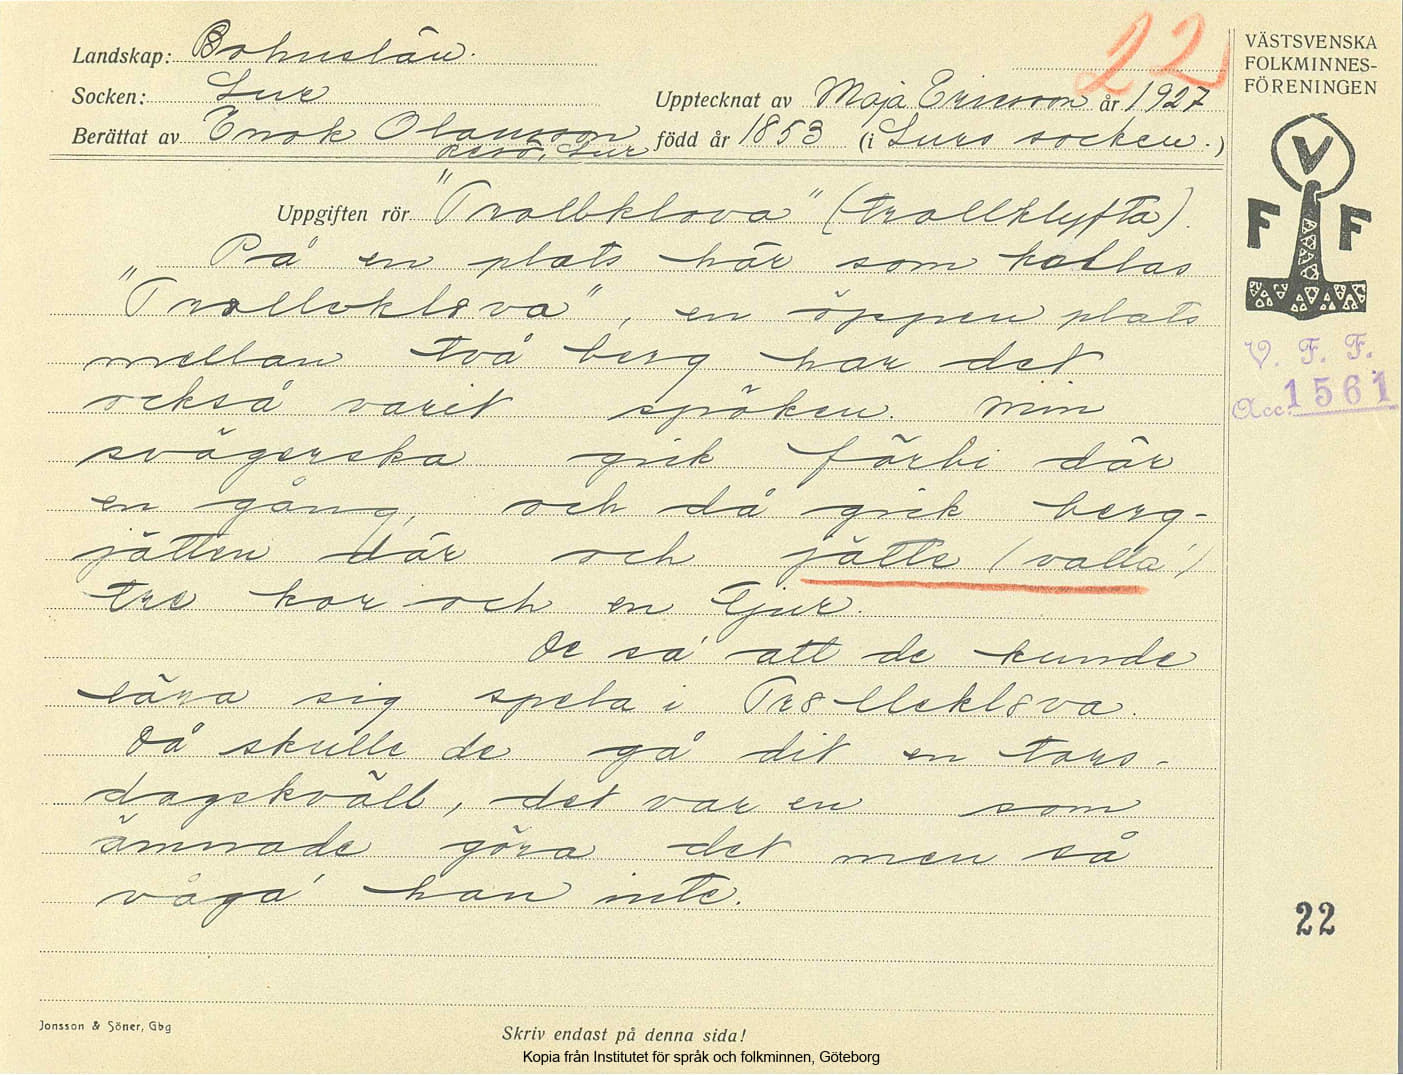 22
Landskap: Bohuslän.
Socken: Lur
Upptecknat av Maja Ericsson år 1927
Berättat av Enok Olausson född år 1853 (i Lurs socken.)
Resö, Lur
Uppgiften rör "Trollklova" (trollklyfta).
På en plats här som kallas
"Trolleklova", en öppen plats
mellan två berg har det
också varit spöken. Min
svägerska gick förbi där
en gång, och då gick berg-
jätten där och jätte (valla')
tre kor och en tjur.
De sa' att de kunde
lära sig spela i Tr8llekl8va.
Då skulle de gå dit en tors-
dagskväll, det var en som
ämnade göra det men så
våga' han inte.
VÄSTSVENSKA
FOLKMINNES-
FÖRENINGEN
V
F F
V. F. F.
Acc. 1561
22
Jonsson & Söner, Gbg
Skriv endast på denna sida!
Kopia från Institutet för språk och folkminnen, Göteborg